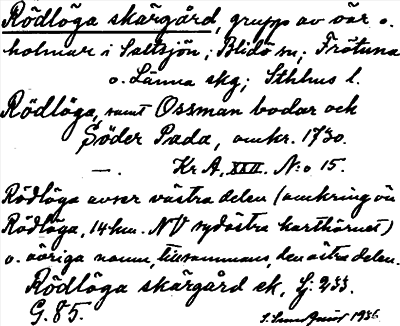 Rödlöga skärgård, grupp av öar o.
holmar i Saltsjön; Blidö sn; Frötuna
o. Länna skg; Sthlms l.
Rödlöga, samt Ossman bodar och
Söder Pada, omkr. 1730.
—. Kr A, XXII. N:o 15.
Rödlöga avser västra delen (omkring ön
Rödlöga, 14 km. NV sydöstra karthörnet)
o. övriga namn, tillsammans, den östra delen.
Rödlöga skärgård ek, G. 233.
G. 85. 1936